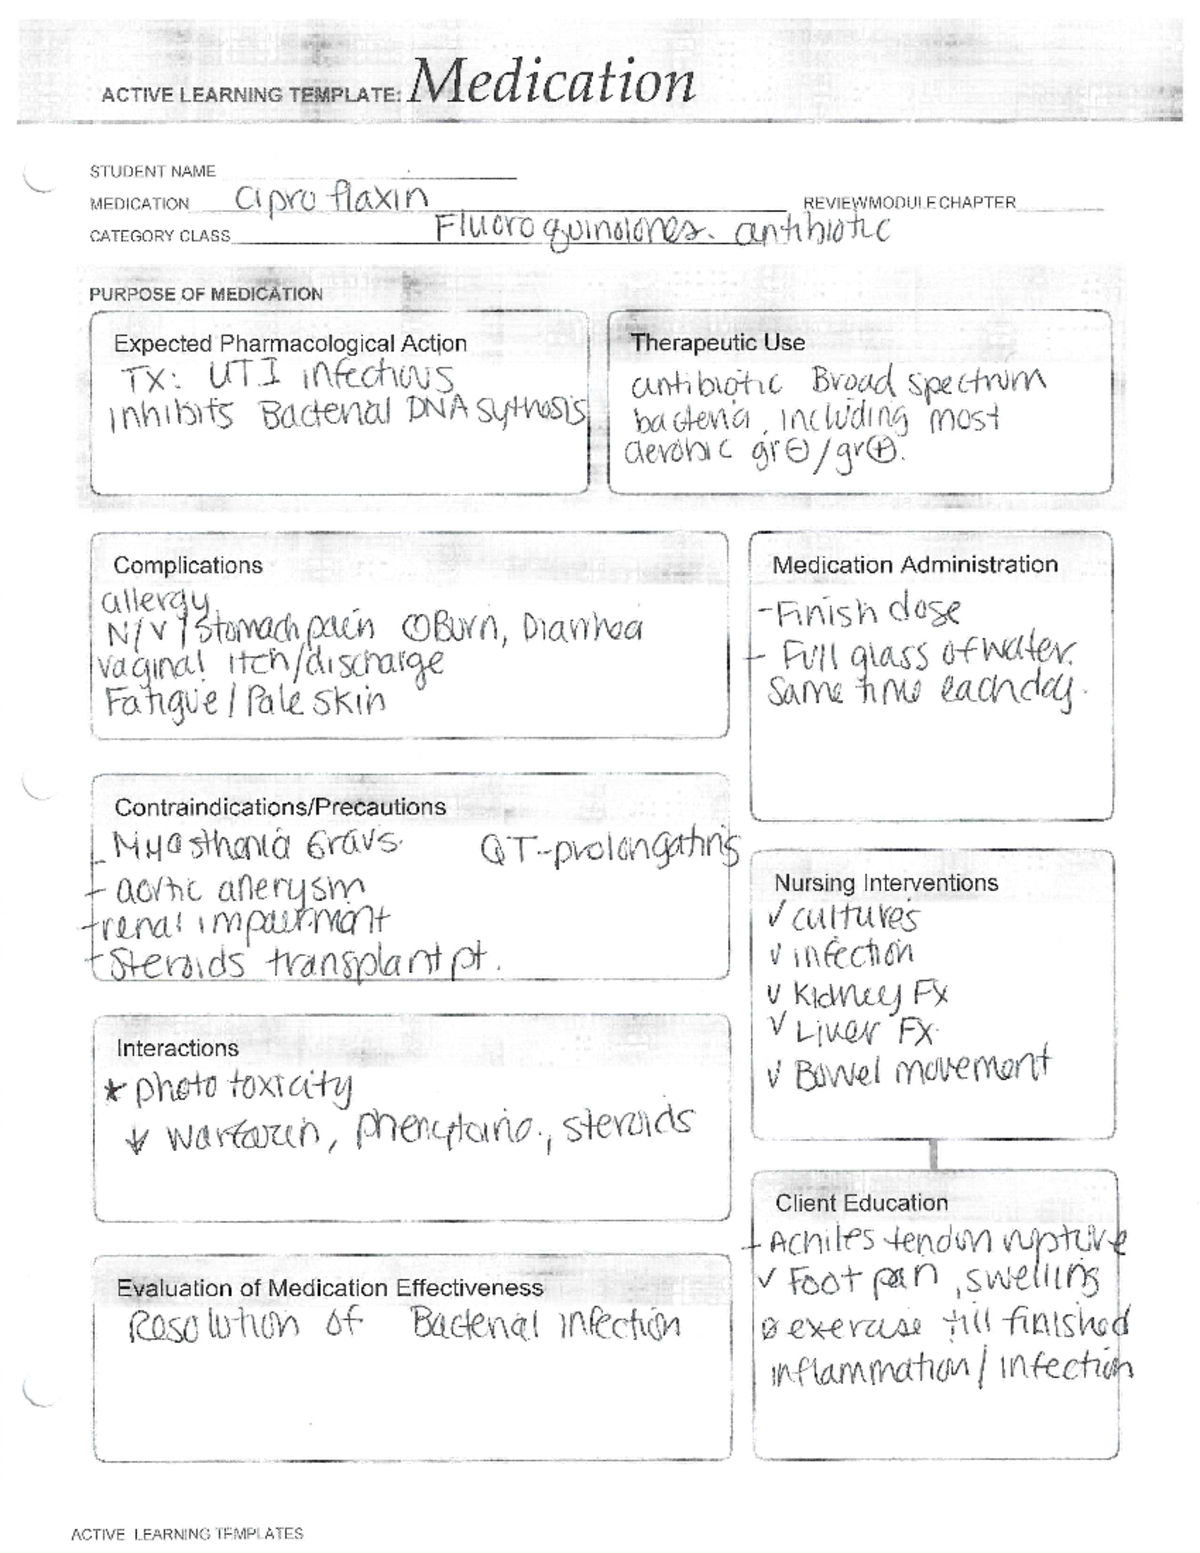 ACTIVE LEARNING TEMPLATE: Medication
STUDENT NAME
MEDICATION Cipro flaxin REVIEW MODULE CHAPTER
CATEGORY CLASS Fluoroquinolones. antibiotic
PURPOSE OF MEDICATION
Expected Pharmacological Action
TX: UTI infections
Inhibits Bacterial DNA sythosis
Therapeutic Use
antibiotic Broad spectrum
bacteria, including most
aerobic gr⊖/gr⊕.
Complications
allergy
N/V/Stomach pain Burn, Diarrhea
vaginal itch/discharge
Fatigue/Pale skin
Medication Administration
-Finish dose
- Full glass of water.
Same time each day.
Contraindications/Precautions
- Myasthenia Gravs. QT-prolongating
- aortic anerysm
- renal impairment
- Steroids transplant pt.
Nursing Interventions
✓ cultures
✓ infection
✓ Kidney Fx
✓ Liver Fx.
✓ Bowel movement
Interactions
★ photo toxicity
↓ warfarin, , steroids
Client Education
- Achiles tendon rupture
✓ Foot pan, swelling
exercise till finished
inflammation/infection
Evaluation of Medication Effectiveness
Resolution of Bacterial infection
ACTIVE LEARNING TEMPLATES